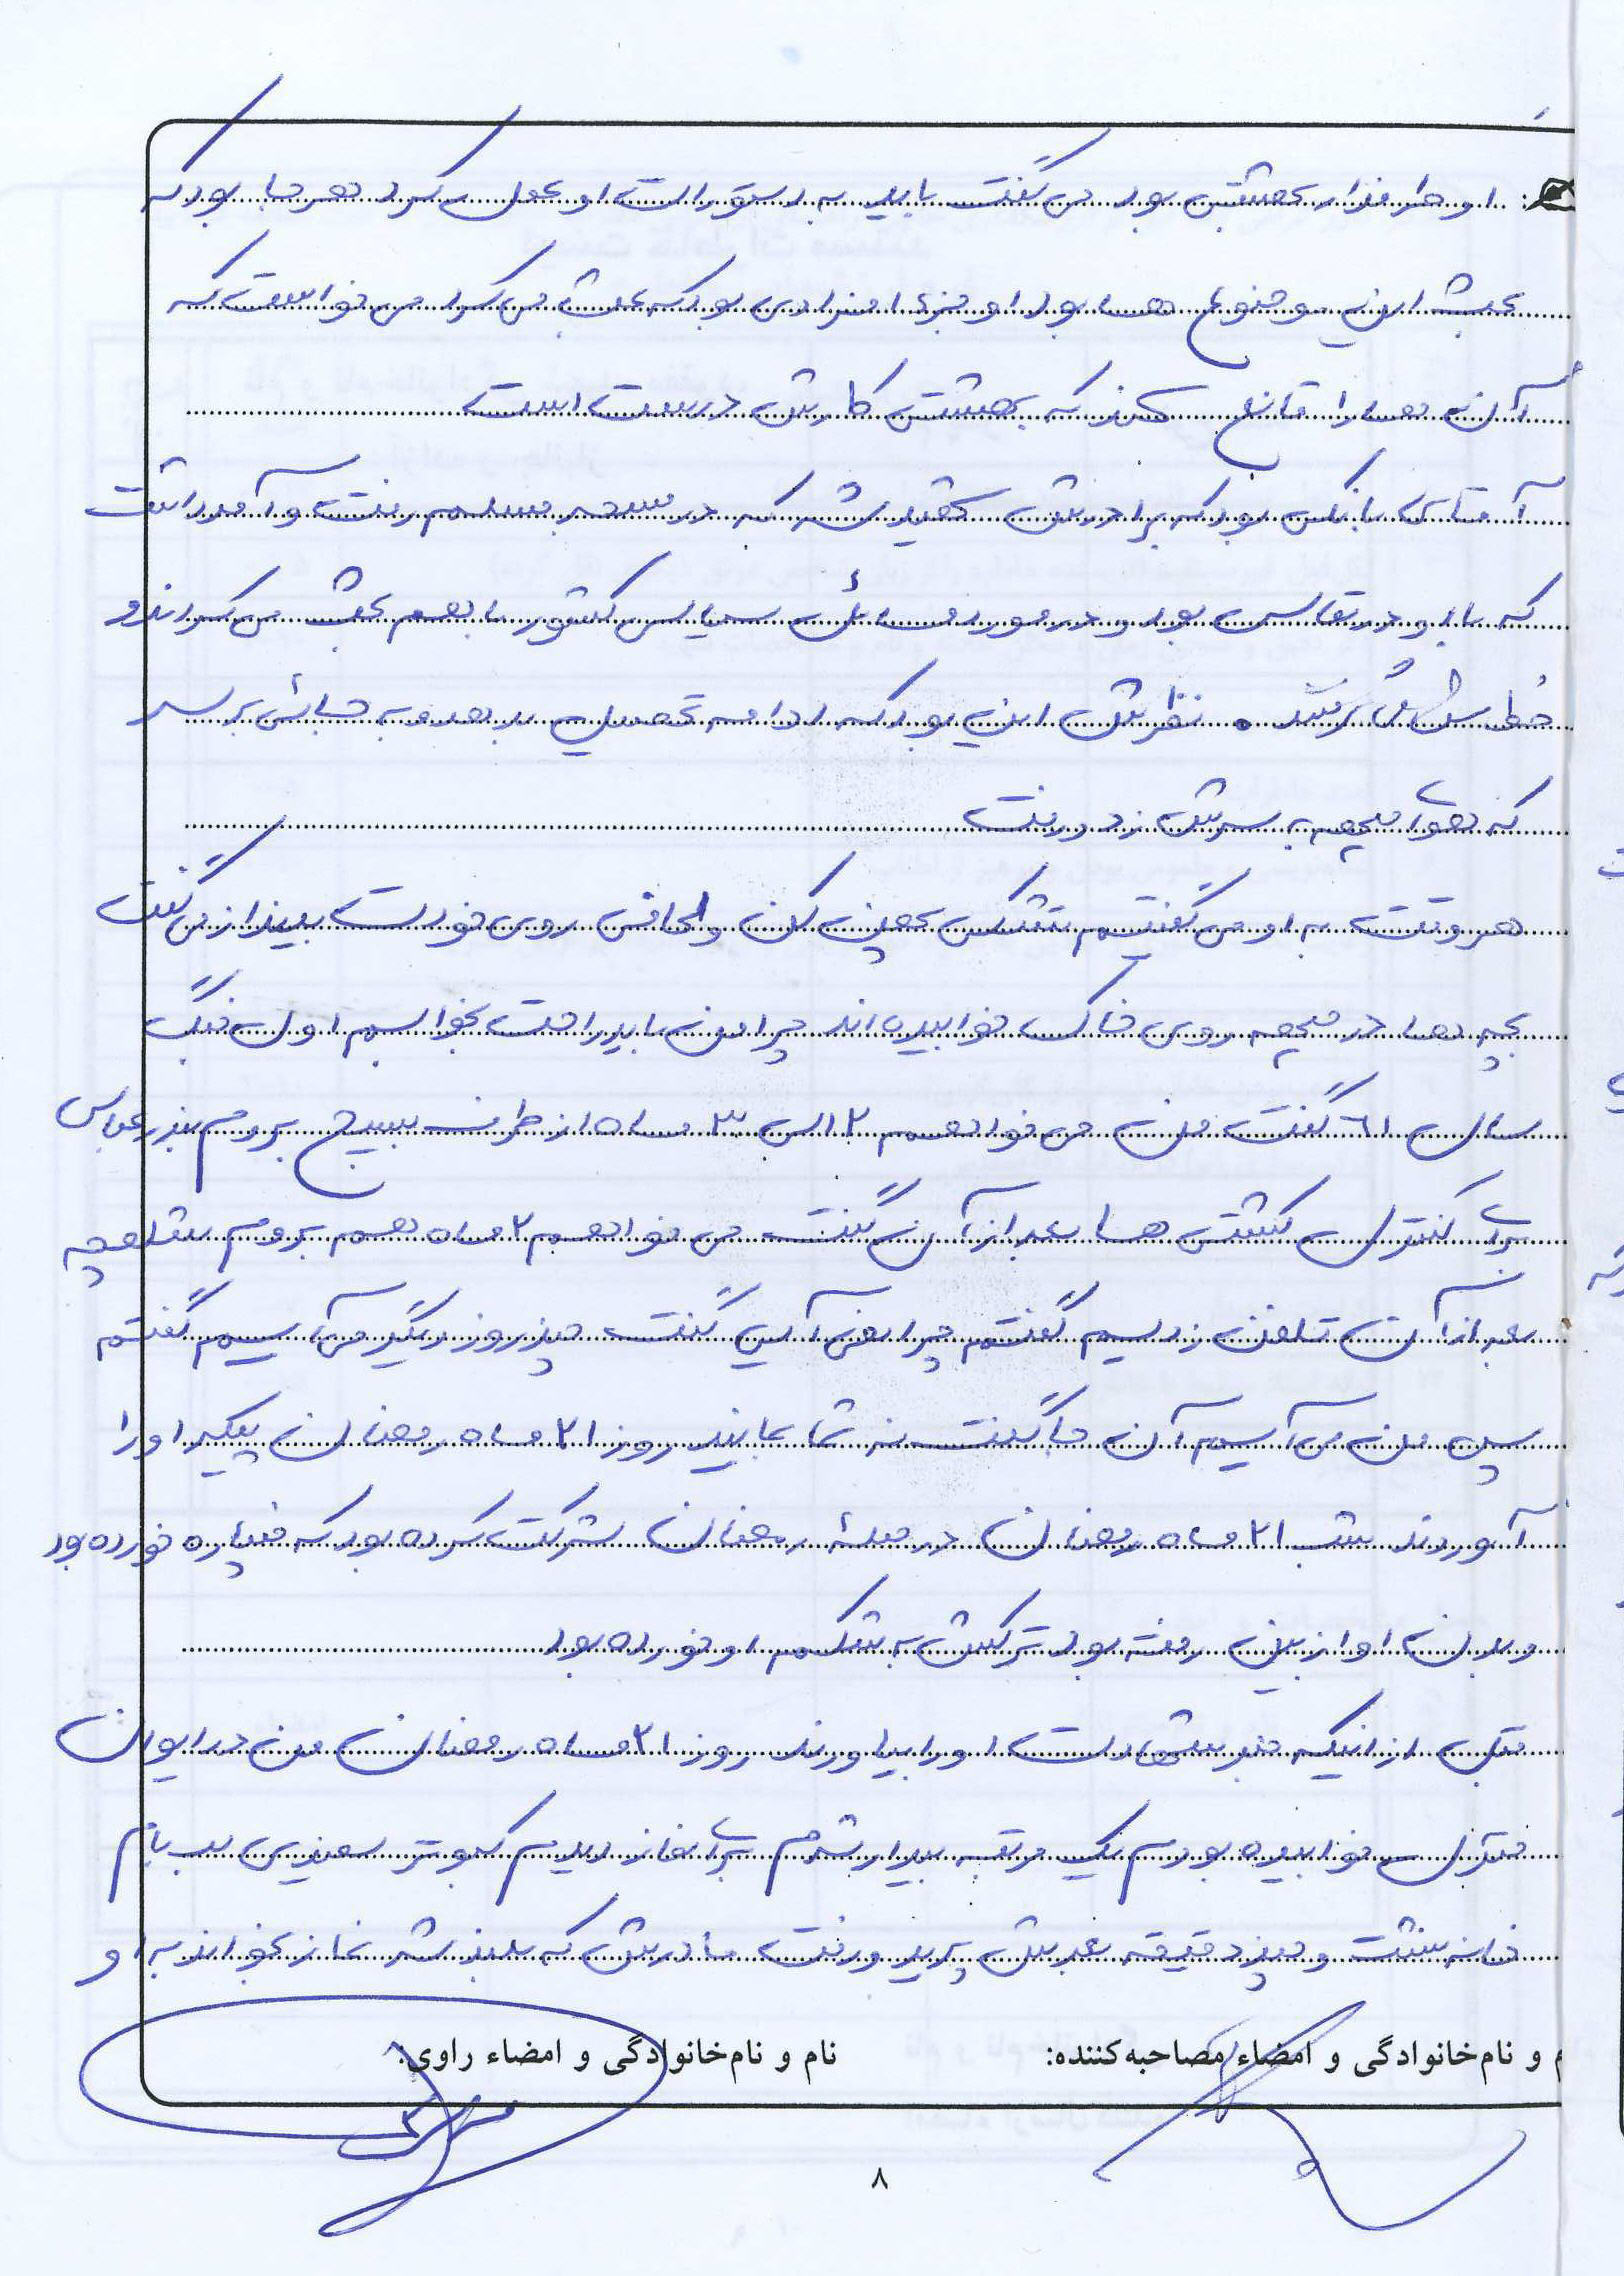 : او طرفدار بهشتی بود می گفت باید به دستورات او عمل کرد هر جا بود که
بحث این موضوع ها بود او جزء افرادی بود که بحث می کرد می خواست که
آن ها را قانع کند که بهشتی کارش درست است
آقای بانکی بود که برادرش شهید شد که در مسجد مسلم رفت و آمد داشت
که با او در تماس بود و در مورد مسائل سیاسی کشور با هم بحث می کردند و
خط می گرفتند . نظرش این بود که ادامه تحصیل بدهد و به جایی برسد
که هوای جبهه به سرش زد و رفت
هر وقت به او می گفتیم تشک پهن کن و لحافی روی خودت بینداز می گفت
بچه ها در جبهه روی خاک خوابیده اند چرا من باید راحت بخوابم اول جنگ
سال ۶۱ گفت من می خواهم ۲ الی ۳ ماه از طرف بسیج بروم بندرعباس
برای کنترل کشتی ها بعد از آن گفت می خواهم ۲ ماه هم بروم شلمچه
بعد از آن تلفن زدیم گفتم چرا نمی آیی گفت چند روز دیگر می آییم گفتم
پس من می آیم آن جا گفت نه شما نمانید روز ۲۱ ماه رمضان پیکر او را
آوردند شب ۲۱ ماه رمضان در حمله رمضان شرکت کرده بود که خمپاره خورده بود
و بدن او از بین رفته بود ترکش به شکم او خورده بود
قبل از اینکه خبر شهادت او را بیاورند روز ۲۱ ماه رمضان من در ایوان
منزل خوابیده بودم یک مرتبه بیدار شدم برای نماز دیدم کبوتر سفیدی لب بام
خانه نشست و چند دقیقه بعدش پرید و رفت مادرش که بلند شد نماز بخواند به او
م و نام‌خانوادگی و امضاء مصاحبه‌کننده: نام و نام‌خانوادگی و امضاء راوی:
۸